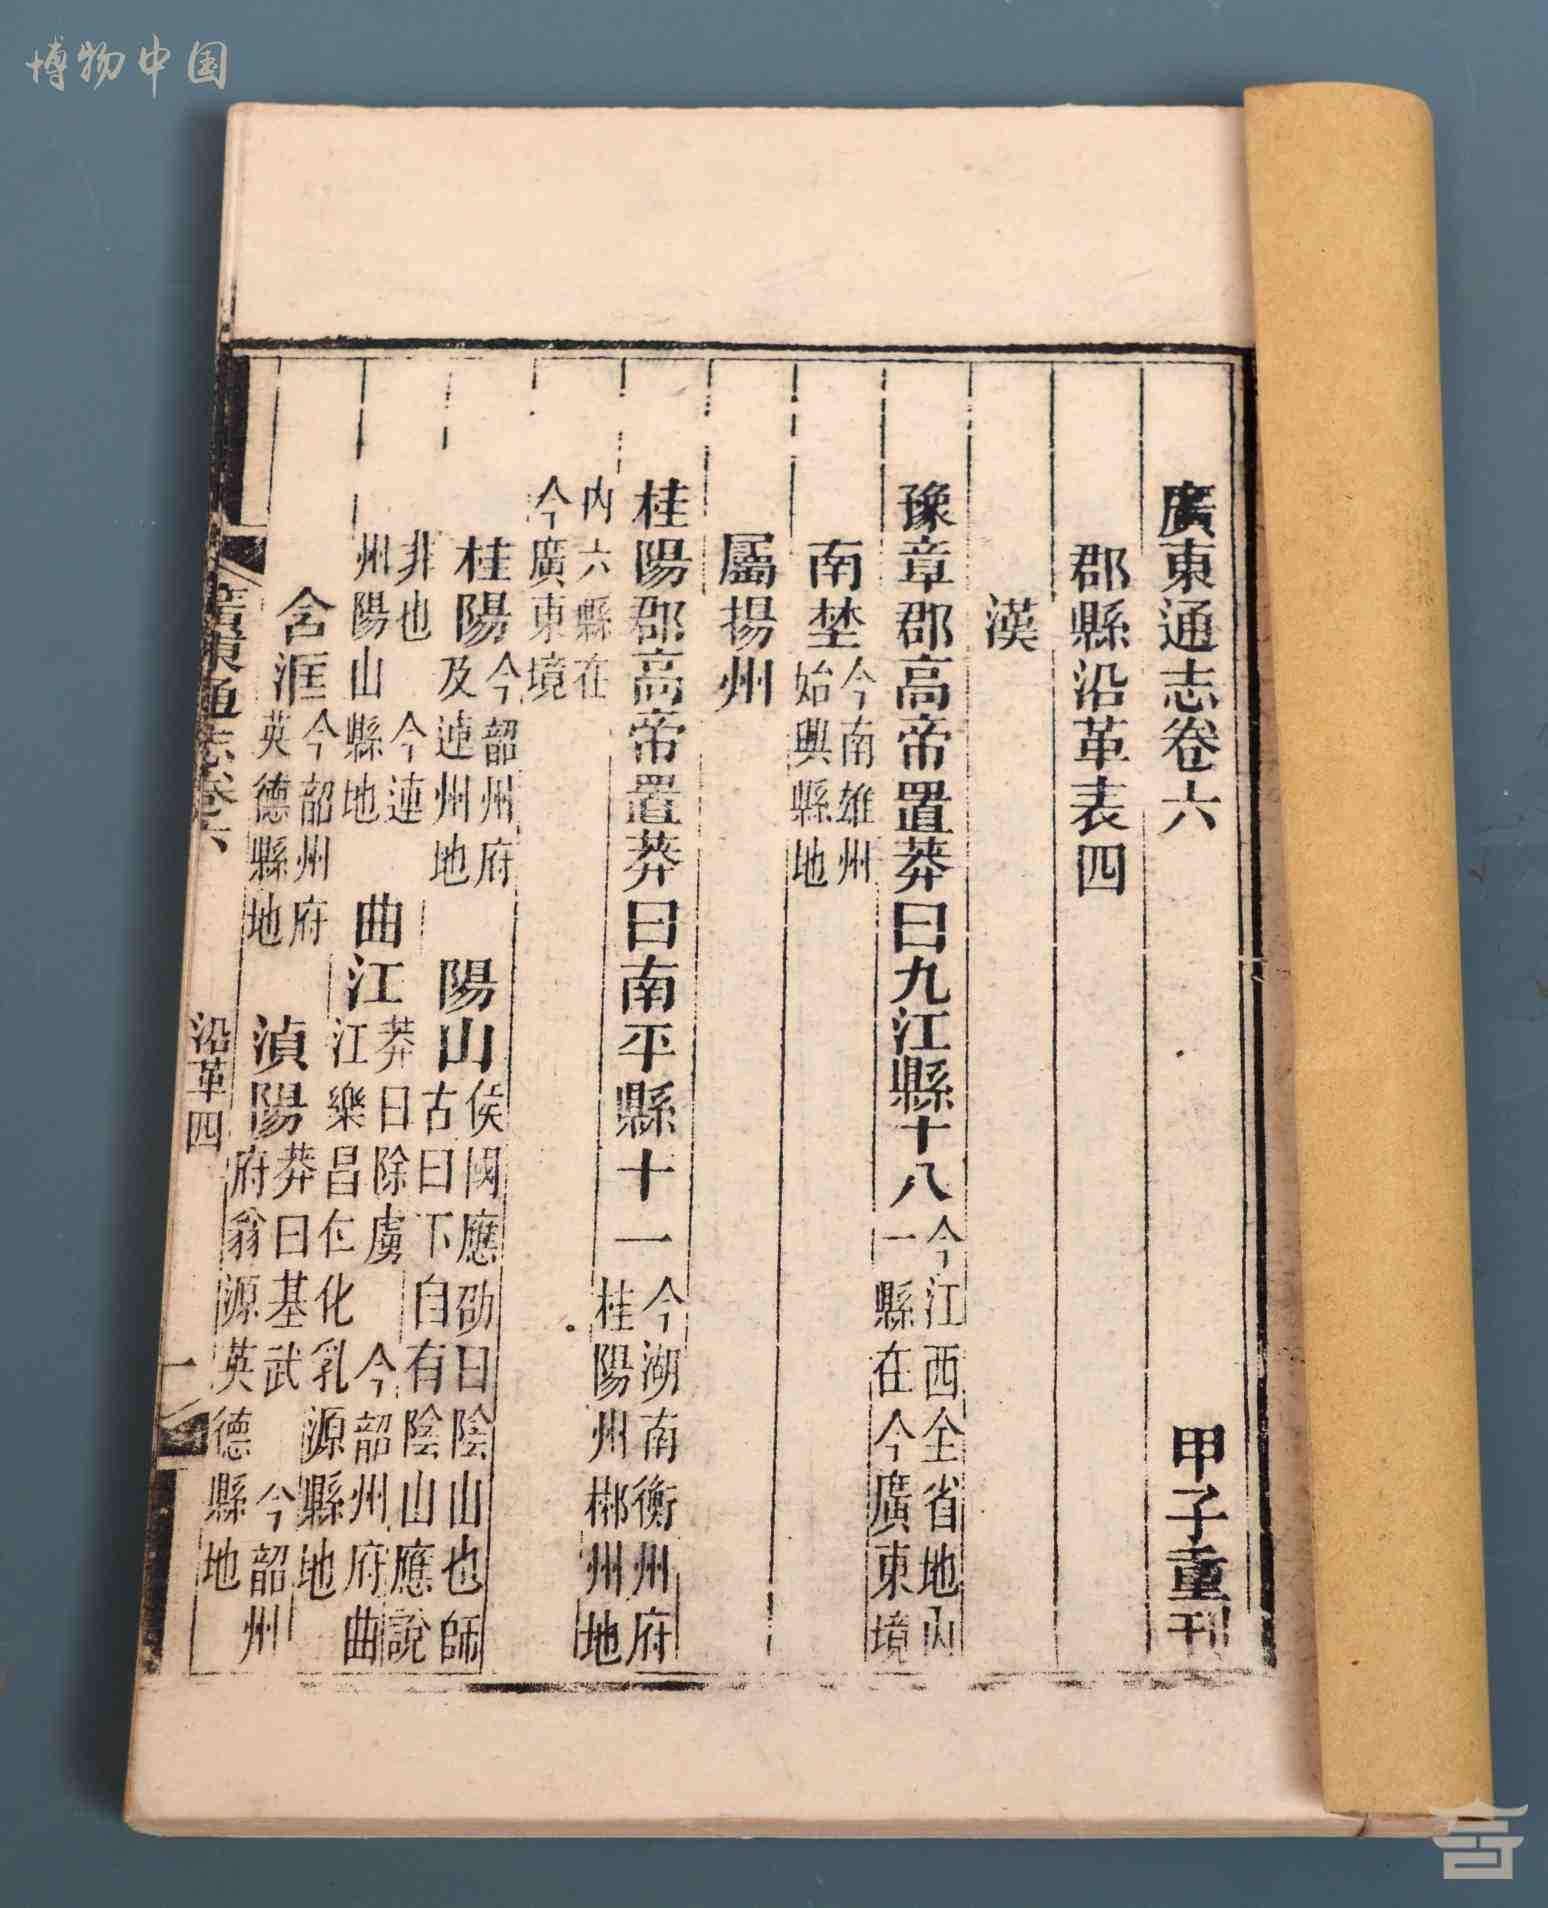 博物中国
廣東通志卷六 甲子重刊
郡縣沿革表四
漢
豫章郡高帝置莽曰九江縣十八 今江西全省地內一縣在今廣東境
南埜 今南雄州始興縣地
屬揚州
桂陽郡高帝置莽曰南平縣十一 今湖南衡州府桂陽州郴州地
內六縣在今廣東境
桂陽 今韶州府及連州地 陽山 侯國應劭曰陰山也師古曰下自有陰山應說
非也 今連州陽山縣地 曲江 莽曰除虜 今韶州府曲江樂昌仁化乳源縣地
含洭 今韶州府英德縣地 湞陽 莽曰基武 今韶州府翁源英德縣地
廣東通志卷六 沿革四 一